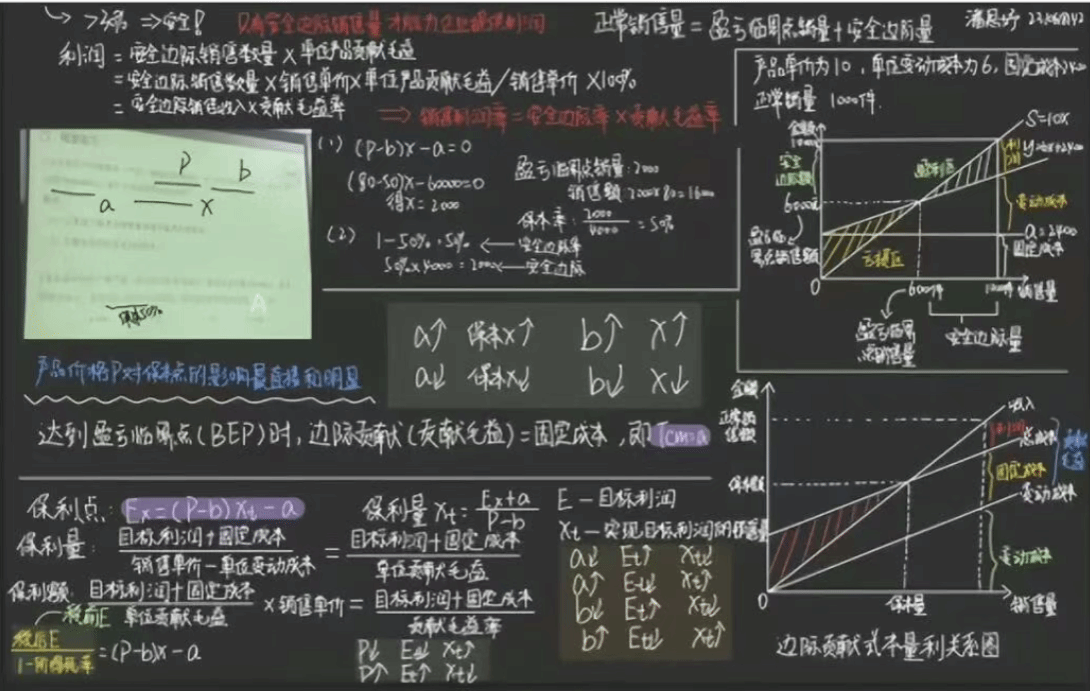 => 安全!
只有安全边际销售量才能为企业提供利润
正常销售量 = 盈亏临界点销量 + 安全边际量
利润 = 安全边际销售数量 × 单位产品贡献毛益
= 安全边际销售数量 × 销售单价 × 单位产品贡献毛益/销售单价 ×100%
= 安全边际销售收入 × 贡献毛益率
=> 销售利润率 = 安全边际率 × 贡献毛益率
产品单价为10,单位变动成本为6,固定成本2400
正常销量 1000件.
(1) (P-b)x-a=0
(80-50)x-60000=0
得x=2000
盈亏临界点销量:2000
销售额:2000×80=16000
保本率: 2000/4000 = 50%
(2) 1-50%=50% ← 安全边际率
50%×4000=2000 ← 安全边际
P b
a x
A
金额
S=10x
y=6x+2400
安全边际额
盈利区
利润
变动成本
6000元
a=2400
固定成本
盈亏临界点销售额
亏损区
0 600件 1000件 销售量
盈亏临界点销售量
安全边际量
a↑ 保本x↑ b↑ x↑
a↓ 保本x↓ b↓ x↓
产品价格P对保本点的影响最直接和明显
达到盈亏临界点(BEP)时,边际贡献(贡献毛益)=固定成本,即Tcm=a
保利点: Ex=(P-b)xt-a
保利量xt= Ex+a/P-b
E-目标利润
xt-实现目标利润的销售量
保利量: 目标利润+固定成本/销售单价-单位变动成本 = 目标利润+固定成本/单位贡献毛益
保利额: 目标利润+固定成本/单位贡献毛益 ×销售单价= 目标利润+固定成本/贡献毛益率
税前E
税后E/1-所得税率 =(P-b)x-a
P↓ E↓ xt↑
P↑ Et↑ xt↓
a↓ Et↑ xt↓
a↑ Et↓ xt↑
b↓ Et↑ xt↓
b↑ Et↓ xt↑
金额
正常销售额
收入
利润
总成本
贡献毛益
保本额
固定成本
变动成本
变动成本
0 保本量 销售量
边际贡献式本量利关系图